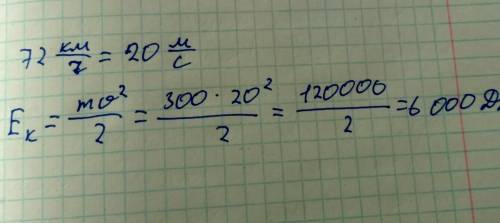 72 км/ч = 20 м/с
Eк = mυ²/2 = 300 · 20²/2 = 120000/2 = 6 000 Д